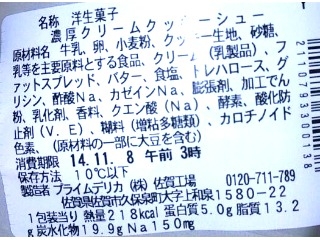 名称 洋生菓子
濃厚クリームクッキーシュー
原材料名 牛乳、卵、小麦粉、クッキー生地、砂糖、
乳等を主要原料とする食品、クリーム(乳製品)、フ
ァットスプレッド、バター、食塩、トレハロース、グ
リシン、酢酸Na、カゼインNa、膨張剤、加工でん
粉、乳化剤、香料、クエン酸(Na)、酵素、酸化防
止剤(V.E)、糊料(増粘多糖類)、カロチノイド
色素、(原材料の一部に大豆を含む)
消費期限 14.11. 8 午前 3時
保存方法 10℃以下
製造者 プライムデリカ(株)佐賀工場 0120-711-789
佐賀県佐賀市久保泉町大字上和泉1580-22
1包装当り 熱量218kcal 蛋白質5.0g 脂質13.2
g 炭水化物19.9g Na150mg